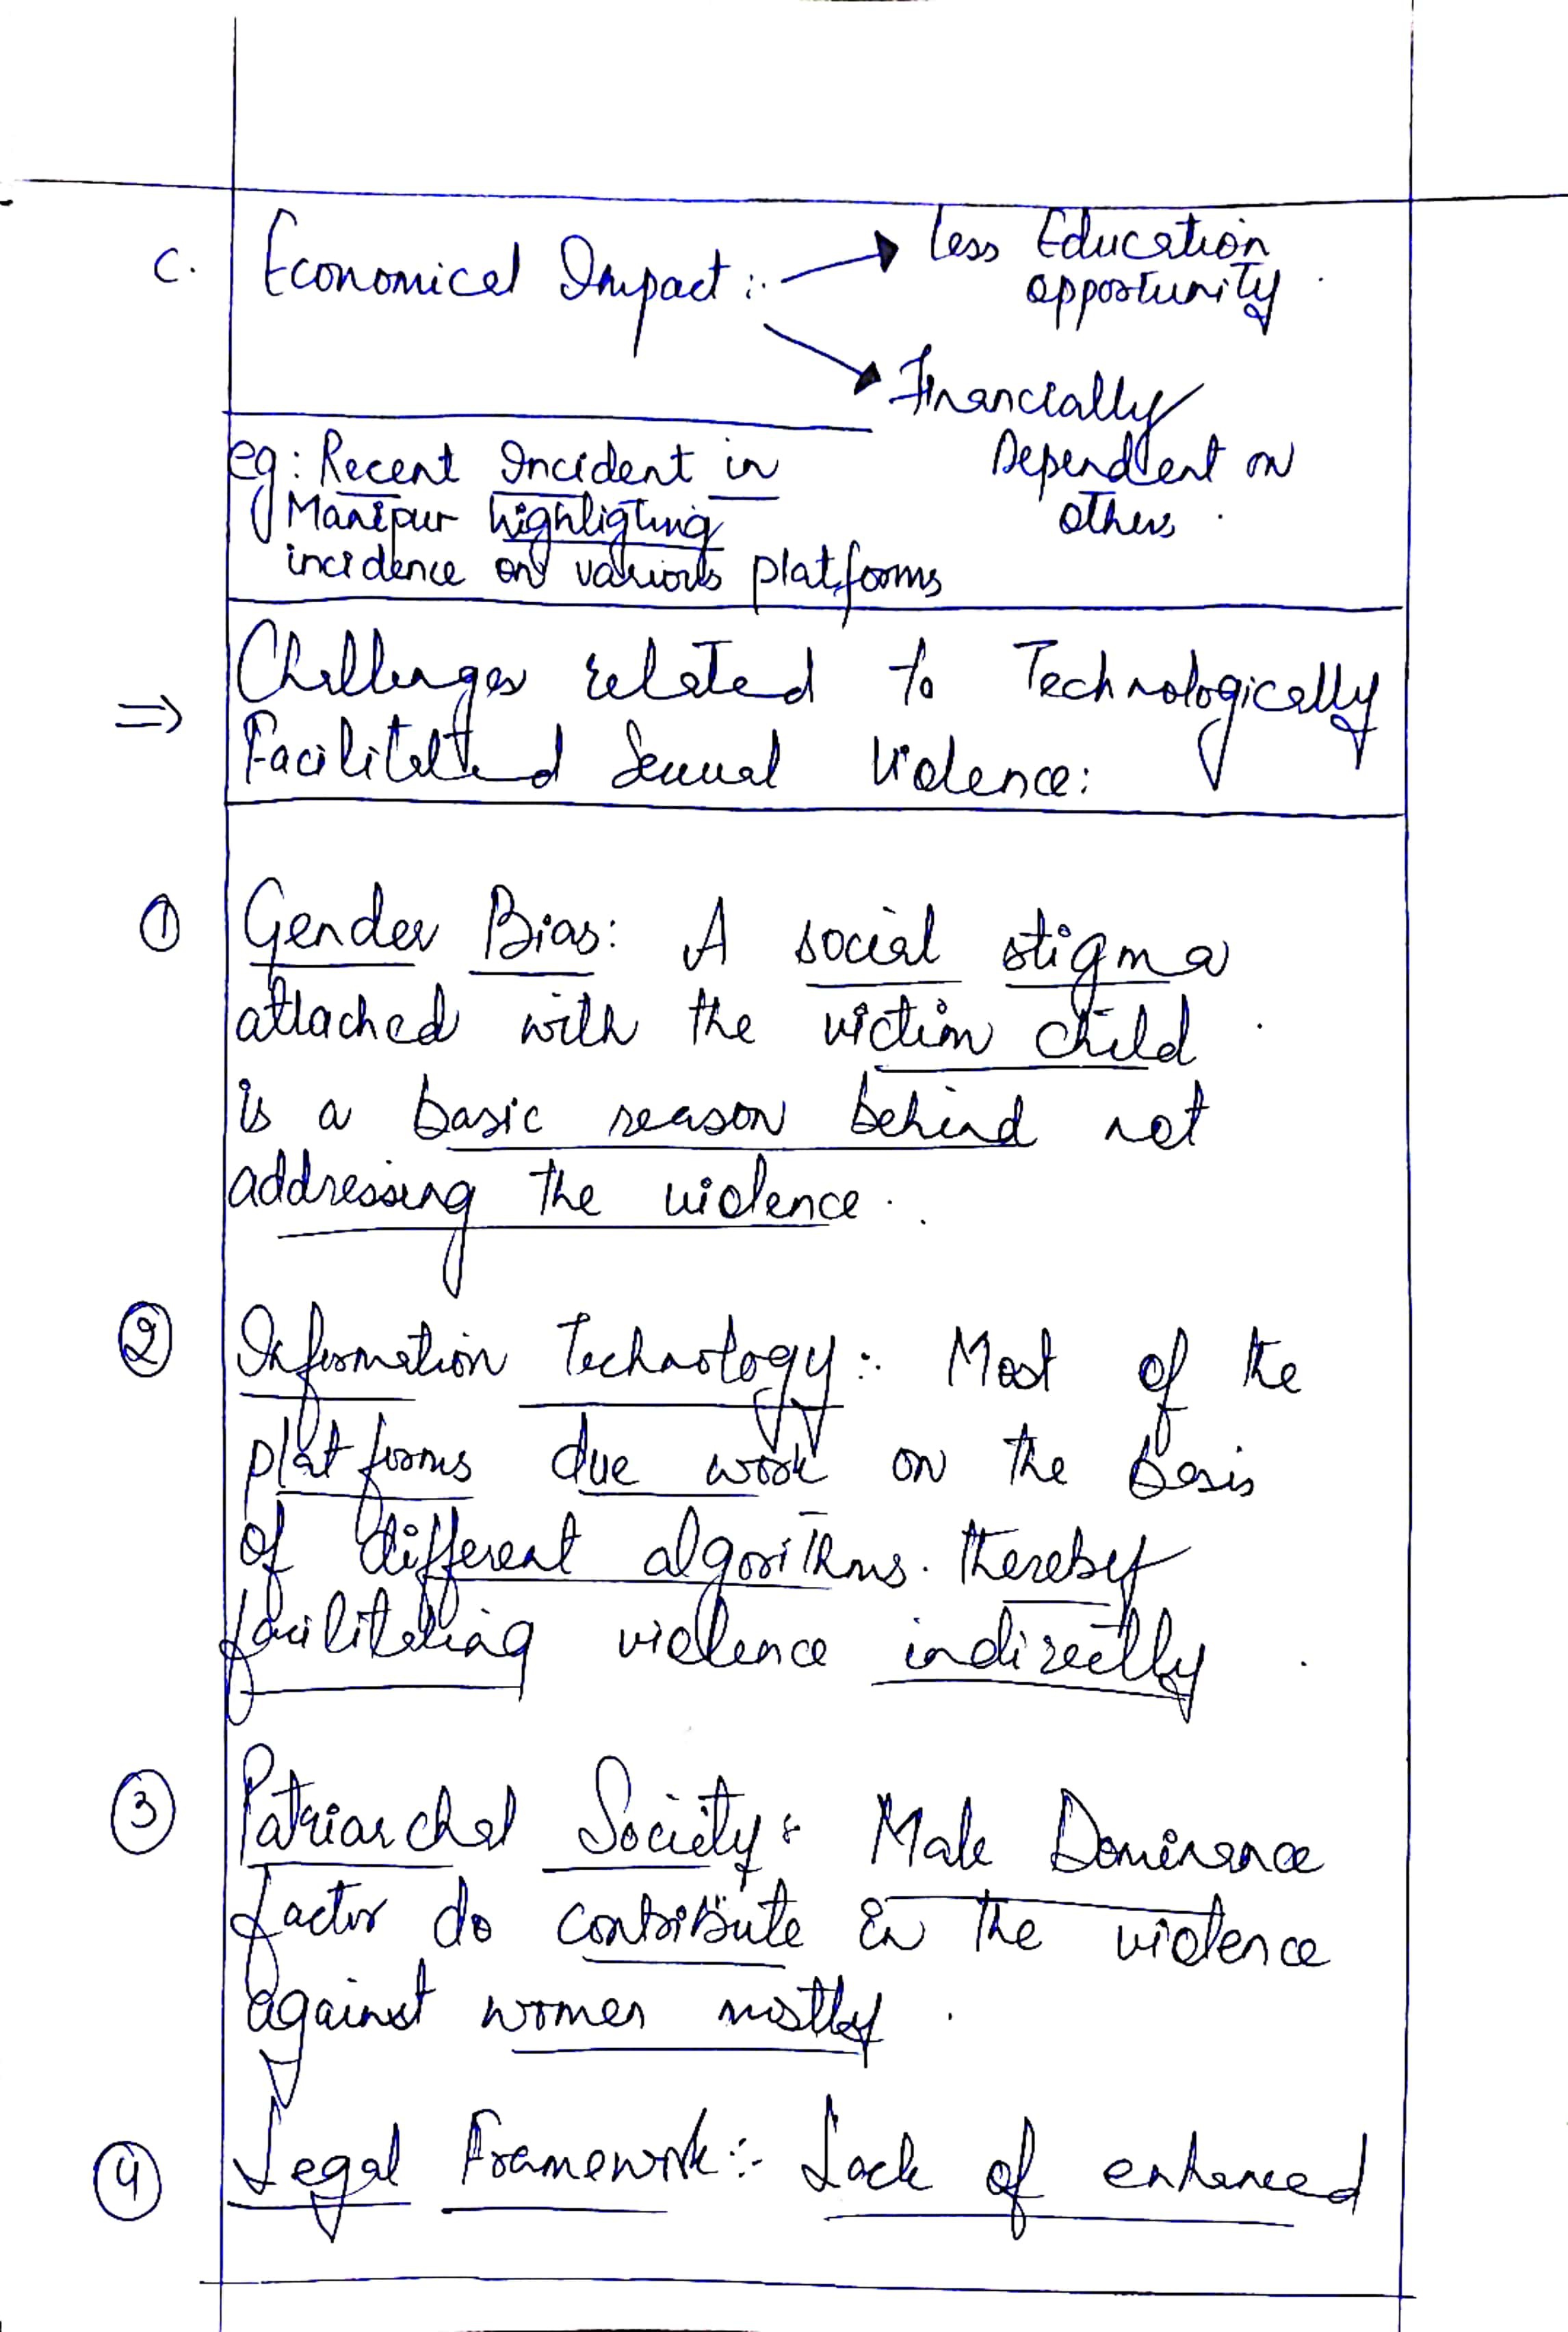 C. Economical Impact :- Less Education
opportunity.
Financially
Dependent on
others.
eg: Recent Incident in
Manipur highligting
incidence on various platforms
=> Challenges related to Technologically
Facilitated Sexual Violence:
① Gender Bias: A social stigma
attached with the victim child
is a basic reason behind not
addressing the violence.
② Information Technology:- Most of the
platforms due work on the basis
of different algorithms. thereby
facilitating violence indirectly.
③ Patriarchal Society: Male Dominance
factor do contribute in the violence
against women mostly.
④ Legal Framework:- Lack of enhanced